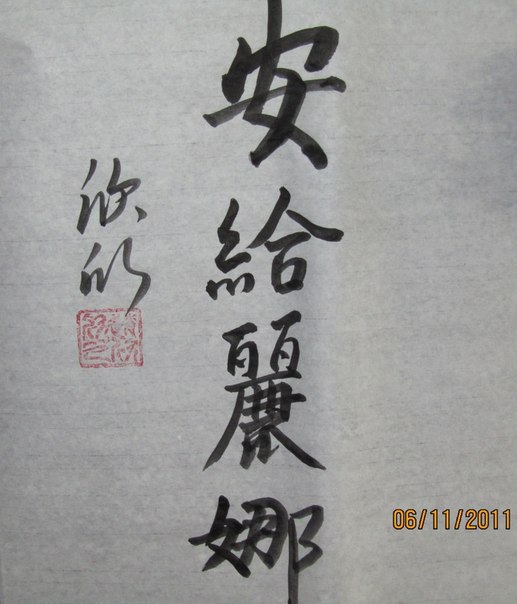 安給麗娜
欣
06/11/2011